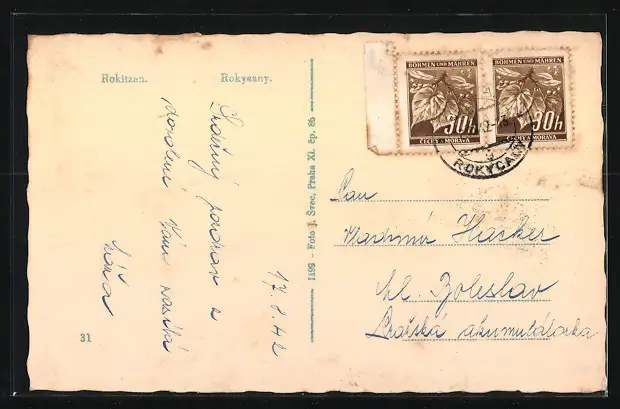 Rokitzan. Rokycany.
Srdečný pozdrav z
dovolené Vám zasílá
Máňa
17.8.42
31
1199 - Foto J. Švec, Praha XI. čp. 86
BÖHMEN UND MÄHREN
30h
ČECHY A MORAVA
BÖHMEN UND MÄHREN
30h
ČECHY A MORAVA
ROKYCANY
Pan
Vladimír Hacker
Ml. Boleslav
Pražská akumulátorka